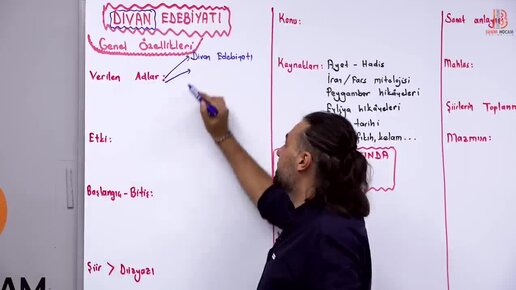 DİVAN EDEBİYATI
Genel Özellikleri
Verilen Adlar:
Divan Edebiyatı
Etki:
Başlangıç-Bitiş:
Şiir > Düzyazı
Konu:
Kaynakları:
Ayet - Hadis
İran / Fars mitolojisi
Peygamber hikâyeleri
Evliya hikâyeleri
tarihi
fıkıh, kelam...
Sanat anlayışı
Mahlas:
Şiirlerin Toplanm
Mazmun: